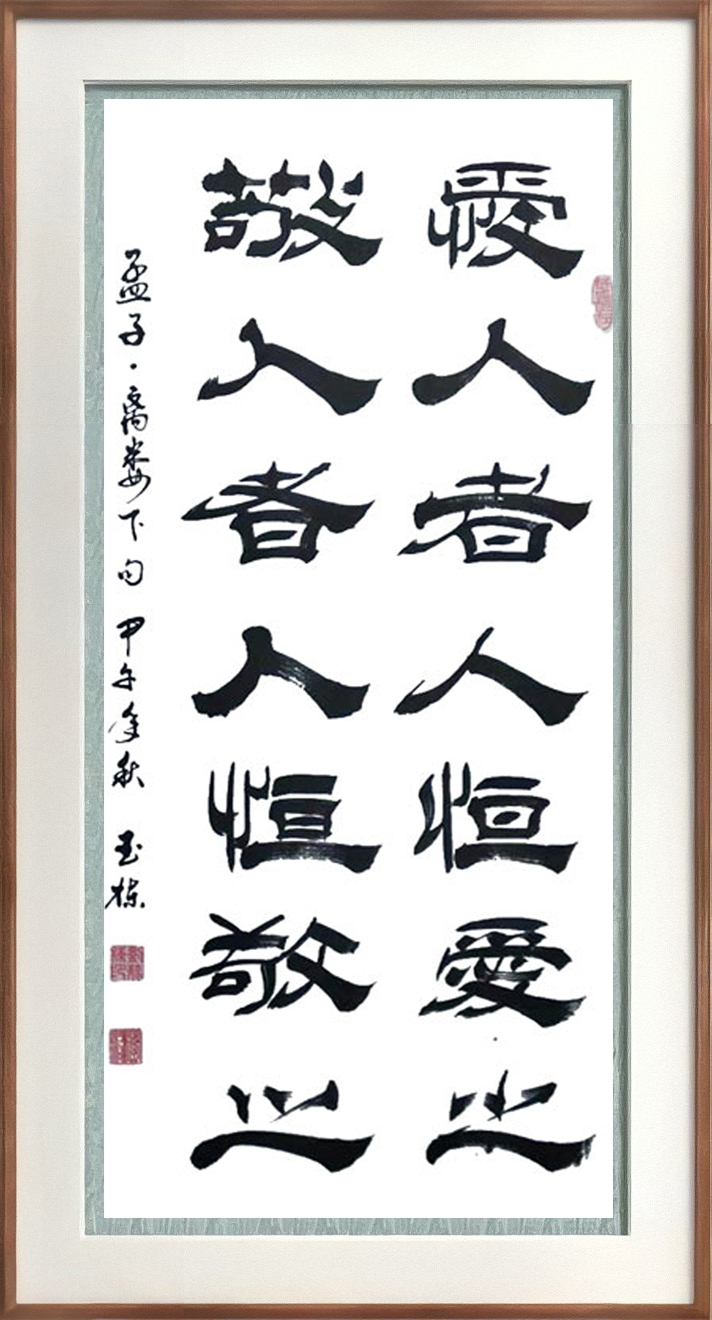 愛人者人恒愛之
敬人者人恒敬之
孟子·离娄下句 甲午年秋 玉栋